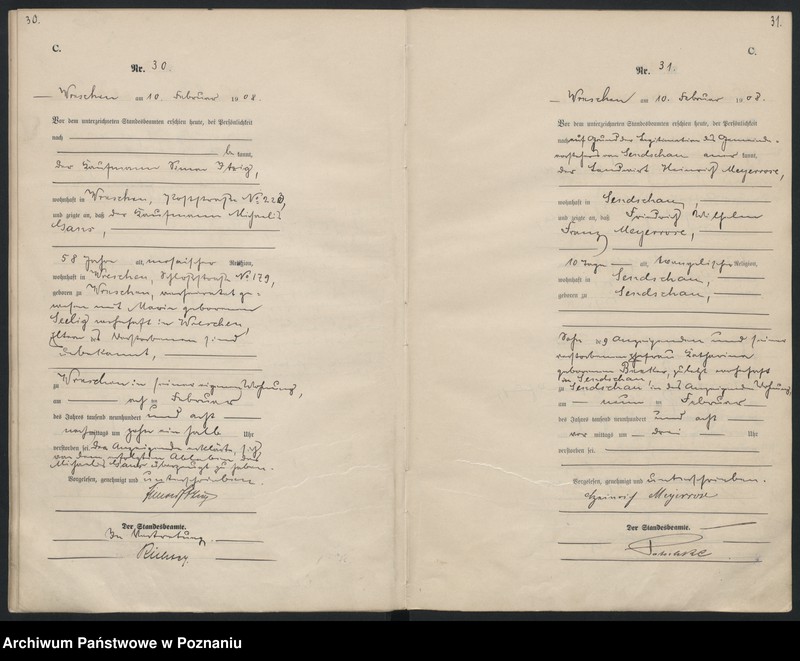 30.
C.
Nr. 30.
Wreschen am 10. Februar 1908.
Vor dem unterzeichneten Standesbeamten erschien heute, der Persönlichkeit
nach
be kannt,
der Kaufmann Simon Itzig,
wohnhaft in Wreschen, Posenerstraße № 223,
und zeigte an, daß der Kaufmann Michaelis
Ganz,
58 Jahre alt, mosaischer Religion,
wohnhaft in Wreschen, Schloßstraße № 179,
geboren zu Wreschen, verheiratet ge-
wesen mit Maria geborenen
Seelig wohnhaft in Wreschen,
Eltern des Verstorbenen sind
unbekannt,
zu Wreschen in seiner eigenen Wohnung,
am acht ten Februar
des Jahres tausend neunhundert und acht
nachmittags um zehn ein halb Uhr
verstorben sei. Der Anzeigende erklärte, sich
von dem erfolgten Ableben des
Michaelis Ganz überzeugt zu haben.
Vorgelesen, genehmigt und unterschrieben.
Der Standesbeamte.
In Vertretung.
31.
C.
Nr. 31.
Wreschen am 10. Februar 1908.
Vor dem unterzeichneten Standesbeamten erschien heute, der Persönlichkeit
nach auf Grund der Legitimation des Gemeinde-
vorstehers von Sendschau aner kannt,
der Landwirt Heinrich Meyerrose,
wohnhaft in Sendschau,
und zeigte an, daß Friedrich Wilhelm
Franz Meyerrose,
10 Tage alt, evangelischer Religion,
wohnhaft in Sendschau,
geboren zu Sendschau,
Sohn des Anzeigenden und seiner
verstorbenen Ehefrau Katharina
geborenen Banker, zuletzt wohnhaft
in Sendschau
zu Sendschau in des Anzeigenden Wohnung,
am neun ten Februar
des Jahres tausend neunhundert und acht
vor mittags um drei Uhr
verstorben sei.
Vorgelesen, genehmigt und unterschrieben.
Heinrich Meyerrose
Der Standesbeamte.
Archiwum Państwowe w Poznaniu